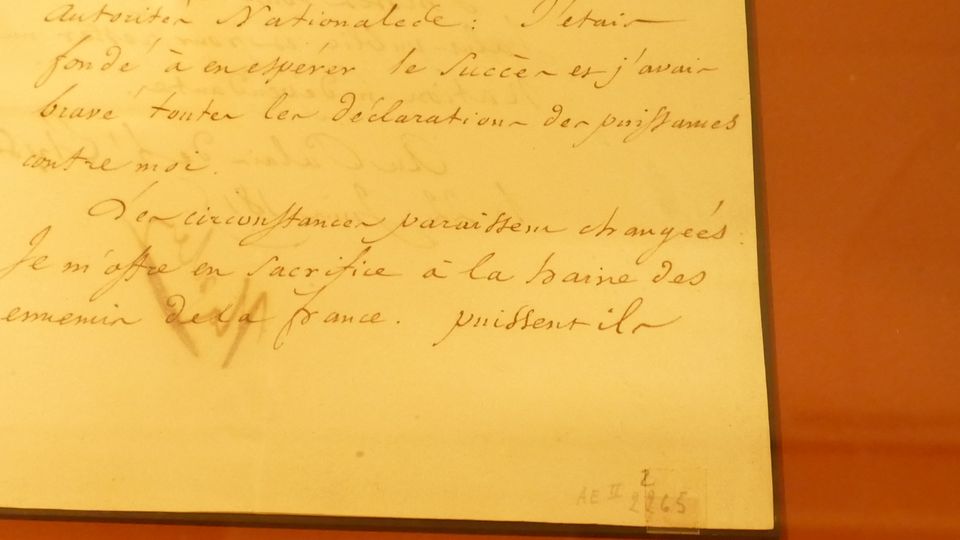 autorités Nationalede : J'etais
fondé à en espérer le succès et j'avais
bravé toutes les déclarations des puissances
contre moi.
Les circonstances paraissent changées.
Je m'offre en sacrifice à la haine des
ennemis de la france. puissent ils
2
AE II 2265